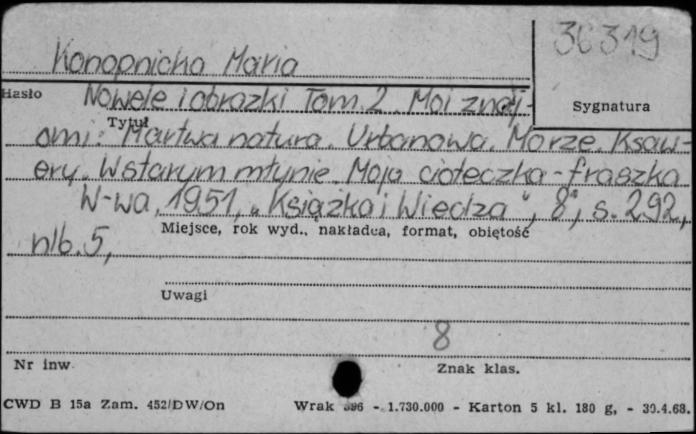 36319
Konopnicka Maria
Hasło
Sygnatura
Nowele i obrazki Tom 2. Moi znaj-
Tytuł
omi: Martwa natura. Urbanowa. Morze. Ksaw-
ery. W starym młynie. Moja cioteczka - fraszka.
W-wa, 1951, "Książka i Wiedza", 8°, s. 292,
Miejsce, rok wyd., nakładca, format, objętość
nlb. 5,
Uwagi
8
Nr inw.
Znak klas.
CWD B 15a Zam. 452/DW/On
Wrak 396 - 1.730.000 - Karton 5 kl. 180 g, - 30.4.68.